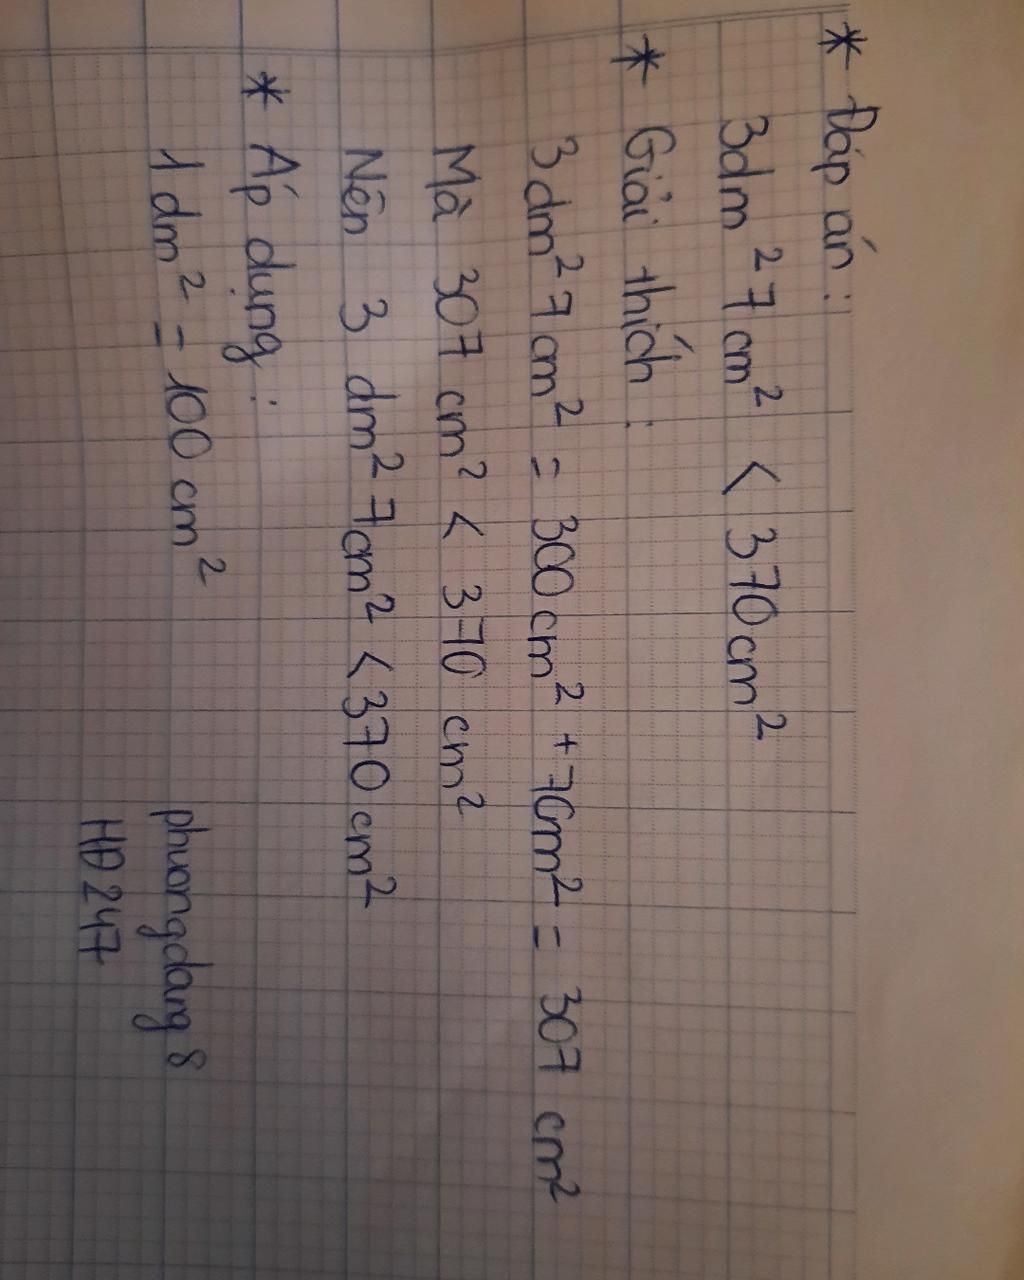 * Đáp án :
3dm² 7cm² < 370cm²
* Giải thích :
3dm² 7cm² = 300cm² + 7cm² = 307 cm²
Mà 307 cm² < 370 cm²
Nên 3 dm² 7cm² < 370 cm²
* Áp dụng :
1 dm² = 100 cm²
phuongdang 8
HĐ 247